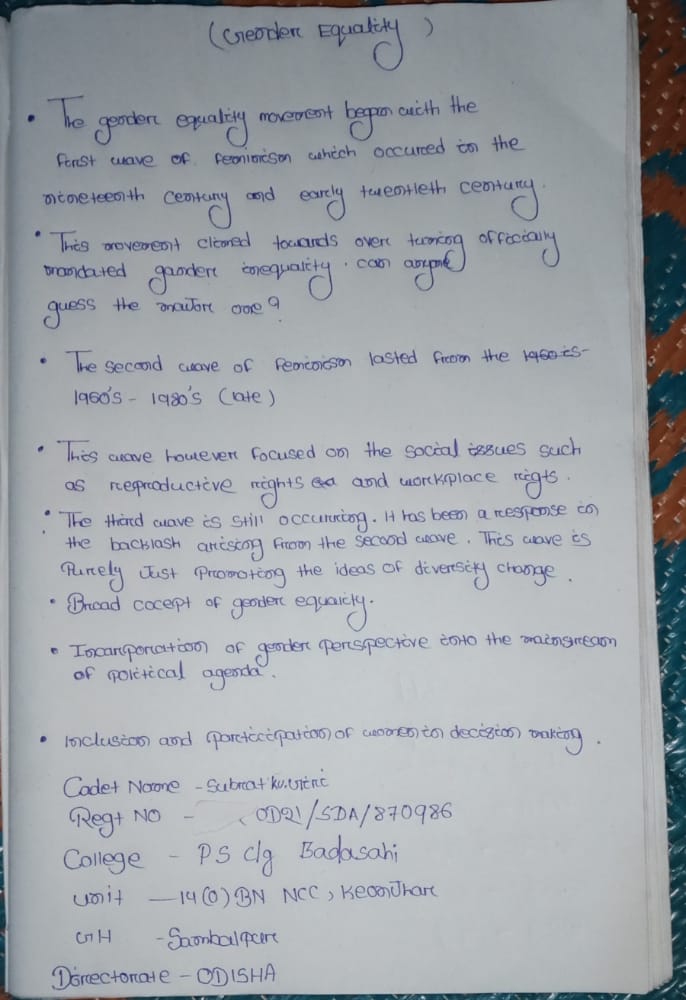 (Gender Equality)
• The gender equality movement began with the
first wave of feminism which occured in the
nineteenth century and early twentieth century.
• This movement climed towards over turning officially
mandated gander inequality. can anyone
guess the one?
• The second wave of feminism lasted from the
1960's - 1980's (late)
• This wave however focused on the social issues such
as reproductive rights and workplace rigts.
• The third wave is still occurring. It has been a response in
the backlash arising from the second wave. This wave is
Purely Just Promoting the ideas of diversity change.
• Broad cocept of gender equality.
• Incorporation of gender perspective into the mainstream
of political agenda.
• Inclusion and participation of women in decision making.
Cadet Name - Subrat ku.
Regt NO - OD21/SDA/870986
College - PS clg Badasahi
Unit - 14 (O) BN NCC, Keonjhar
GH - Sambalpur
Directorate - ODISHA